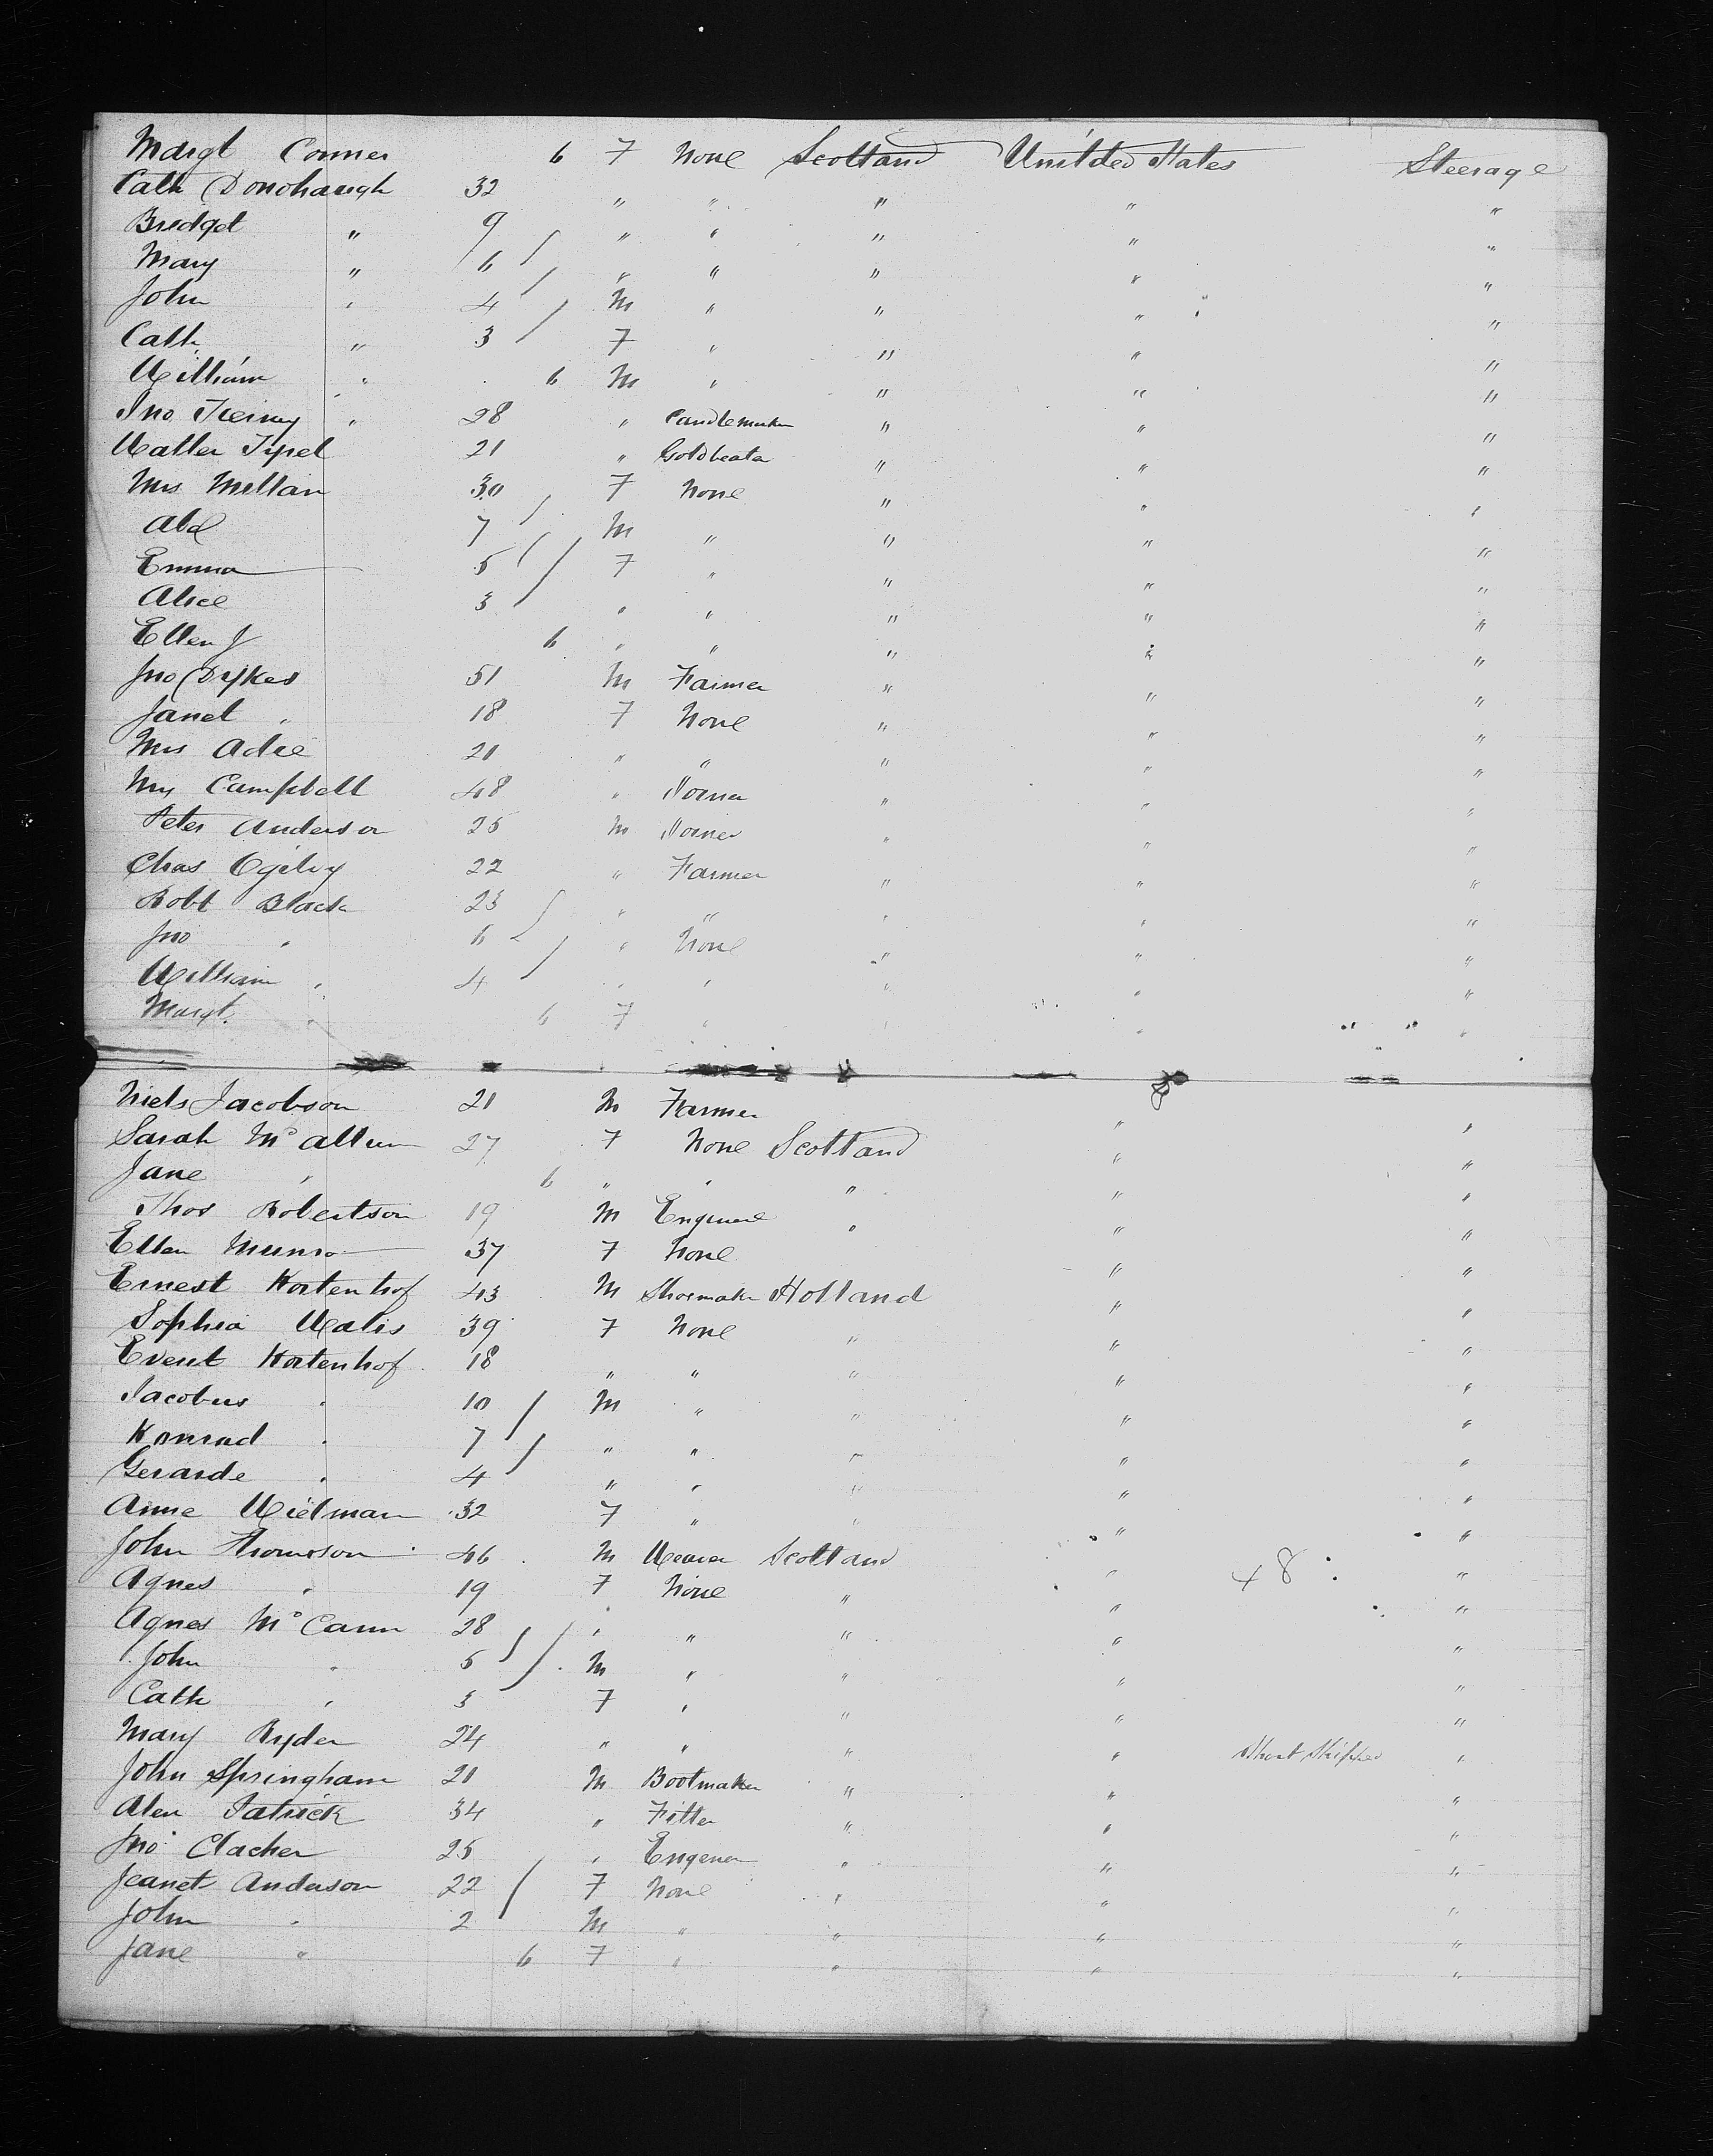 Margt Conner 6 F None Scotland Unitded States Steerage
Cath Donohaugh 32 " " " " "
Bridget " 9 " " " " "
Mary " 6 " " " " "
John " 4 M " " " "
Cath " 3 F " " " "
William " 6 M " " " "
Jno " 28 " Candlemaker " " "
Walter 21 " Goldbeater " " "
Mrs Mellan 30 F None " " "
Abel 7 M " " " "
Emma 5 F " " " "
Alice 3 " " " " "
Ellen J 6 " " " " "
Jno Dykes 51 M Farmer " " "
Janet " 18 F None " " "
Mrs Adie 20 " " " " "
Campbell 48 " Joiner " " "
Peter Anderson 25 M Joiner " " "
Chas Ogilvy 22 " Farmer " " "
Robt Black 23 " " " " "
Jno " 6 " None " " "
William " 4 " " " " "
Margt " 6 F " " " "
Niels Jacobson 21 M Farmer " "
Sarah McAllum 27 F None Scotland " "
Jane " 6 " " " " "
Thos Robertson 19 M Engineer " " "
Ellen Munro 37 F None " "
Ernest Kortenhof 43 M Shoemaker Holland " "
Sophia Walis 39 F None " " "
Evert Kortenhof 18 " " " " "
Jacobus " 10 M " " " "
Konrad " 7 " " " " "
Gerarde " 4 " " " " "
Anne Wielman 32 F " " " "
John Thomson 46 M Weaver Scotland " 48 "
Agnes " 19 F None " " "
Agnes McCann 28 " " " " "
John " 5 M " " " "
Cath " 3 F " " " "
Mary Ryder 24 " " " " Short Shipped "
John Springham 20 M Bootmaker " " "
Alex Patrick 34 " Fitter " " "
Jno Clacher 25 " Engener " " "
Jeanet Anderson 22 F None " " "
John " 2 M " " " "
Jane " 6 F " " " "